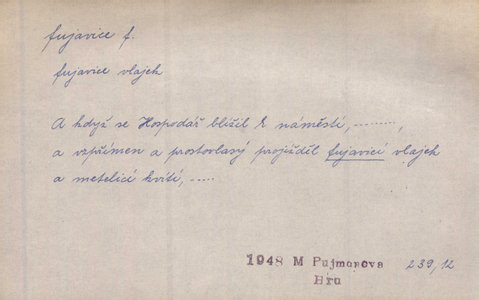 fujavice f.
fujavice vlajek
A když se Hospodář blížil k náměstí, -------,
a vzpřímen a prostovlasý projížděl fujavicí vlajek
a metelicí kvítí, -----
1948 M Pujmanova 239,12
Hra